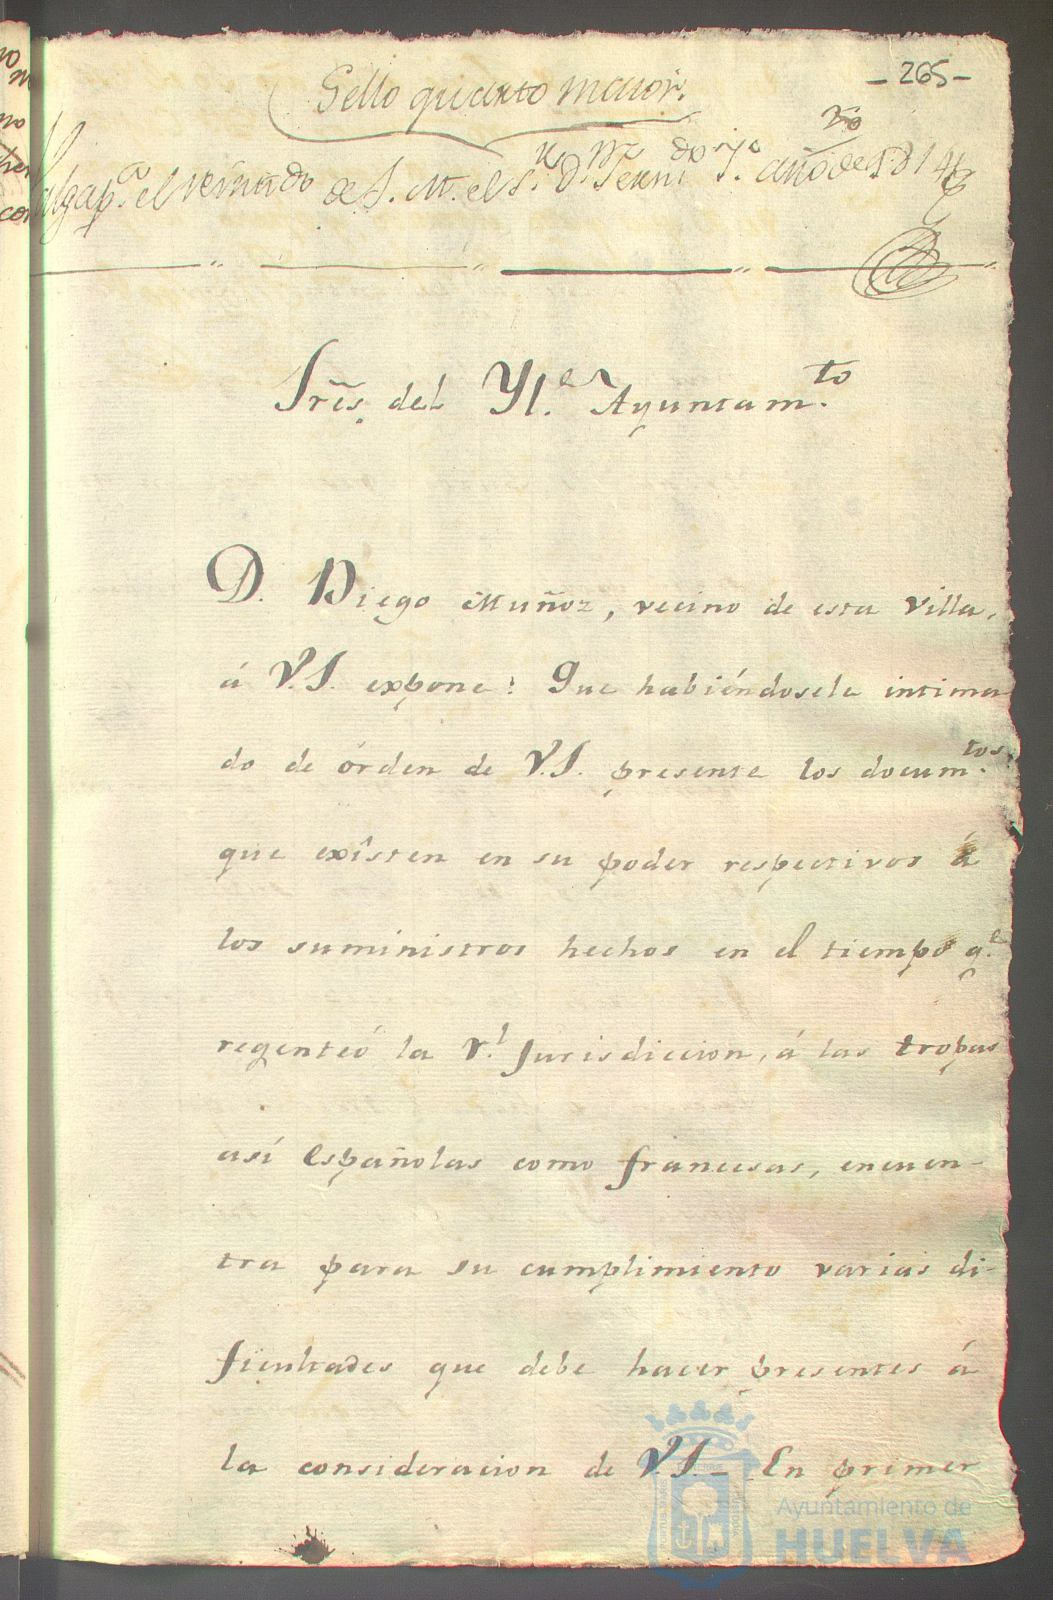 - 265 -
Sello quarto maior.
Valga p.ª el reinado de S. M. el S.r D.n Fern.do 7.º año de 1814
Sres. del Yl.e Ayuntam.to
D. Diego Muñoz, vecino de esta villa,
á V.S. expone: Que habiéndosele intima
do de órden de V.S. presente los docum.tos
que exîsten en su poder respectivos á
los suministros hechos en el tiempo q.e
regenteó la r.l Jurisdiccion, á las tropas
así Españolas como francesas, encuen-
tra para su cumplimiento varias di-
ficultades que debe hacer presentes á
la consideracion de V.S. - En primer
Ayuntamiento de
HUELVA